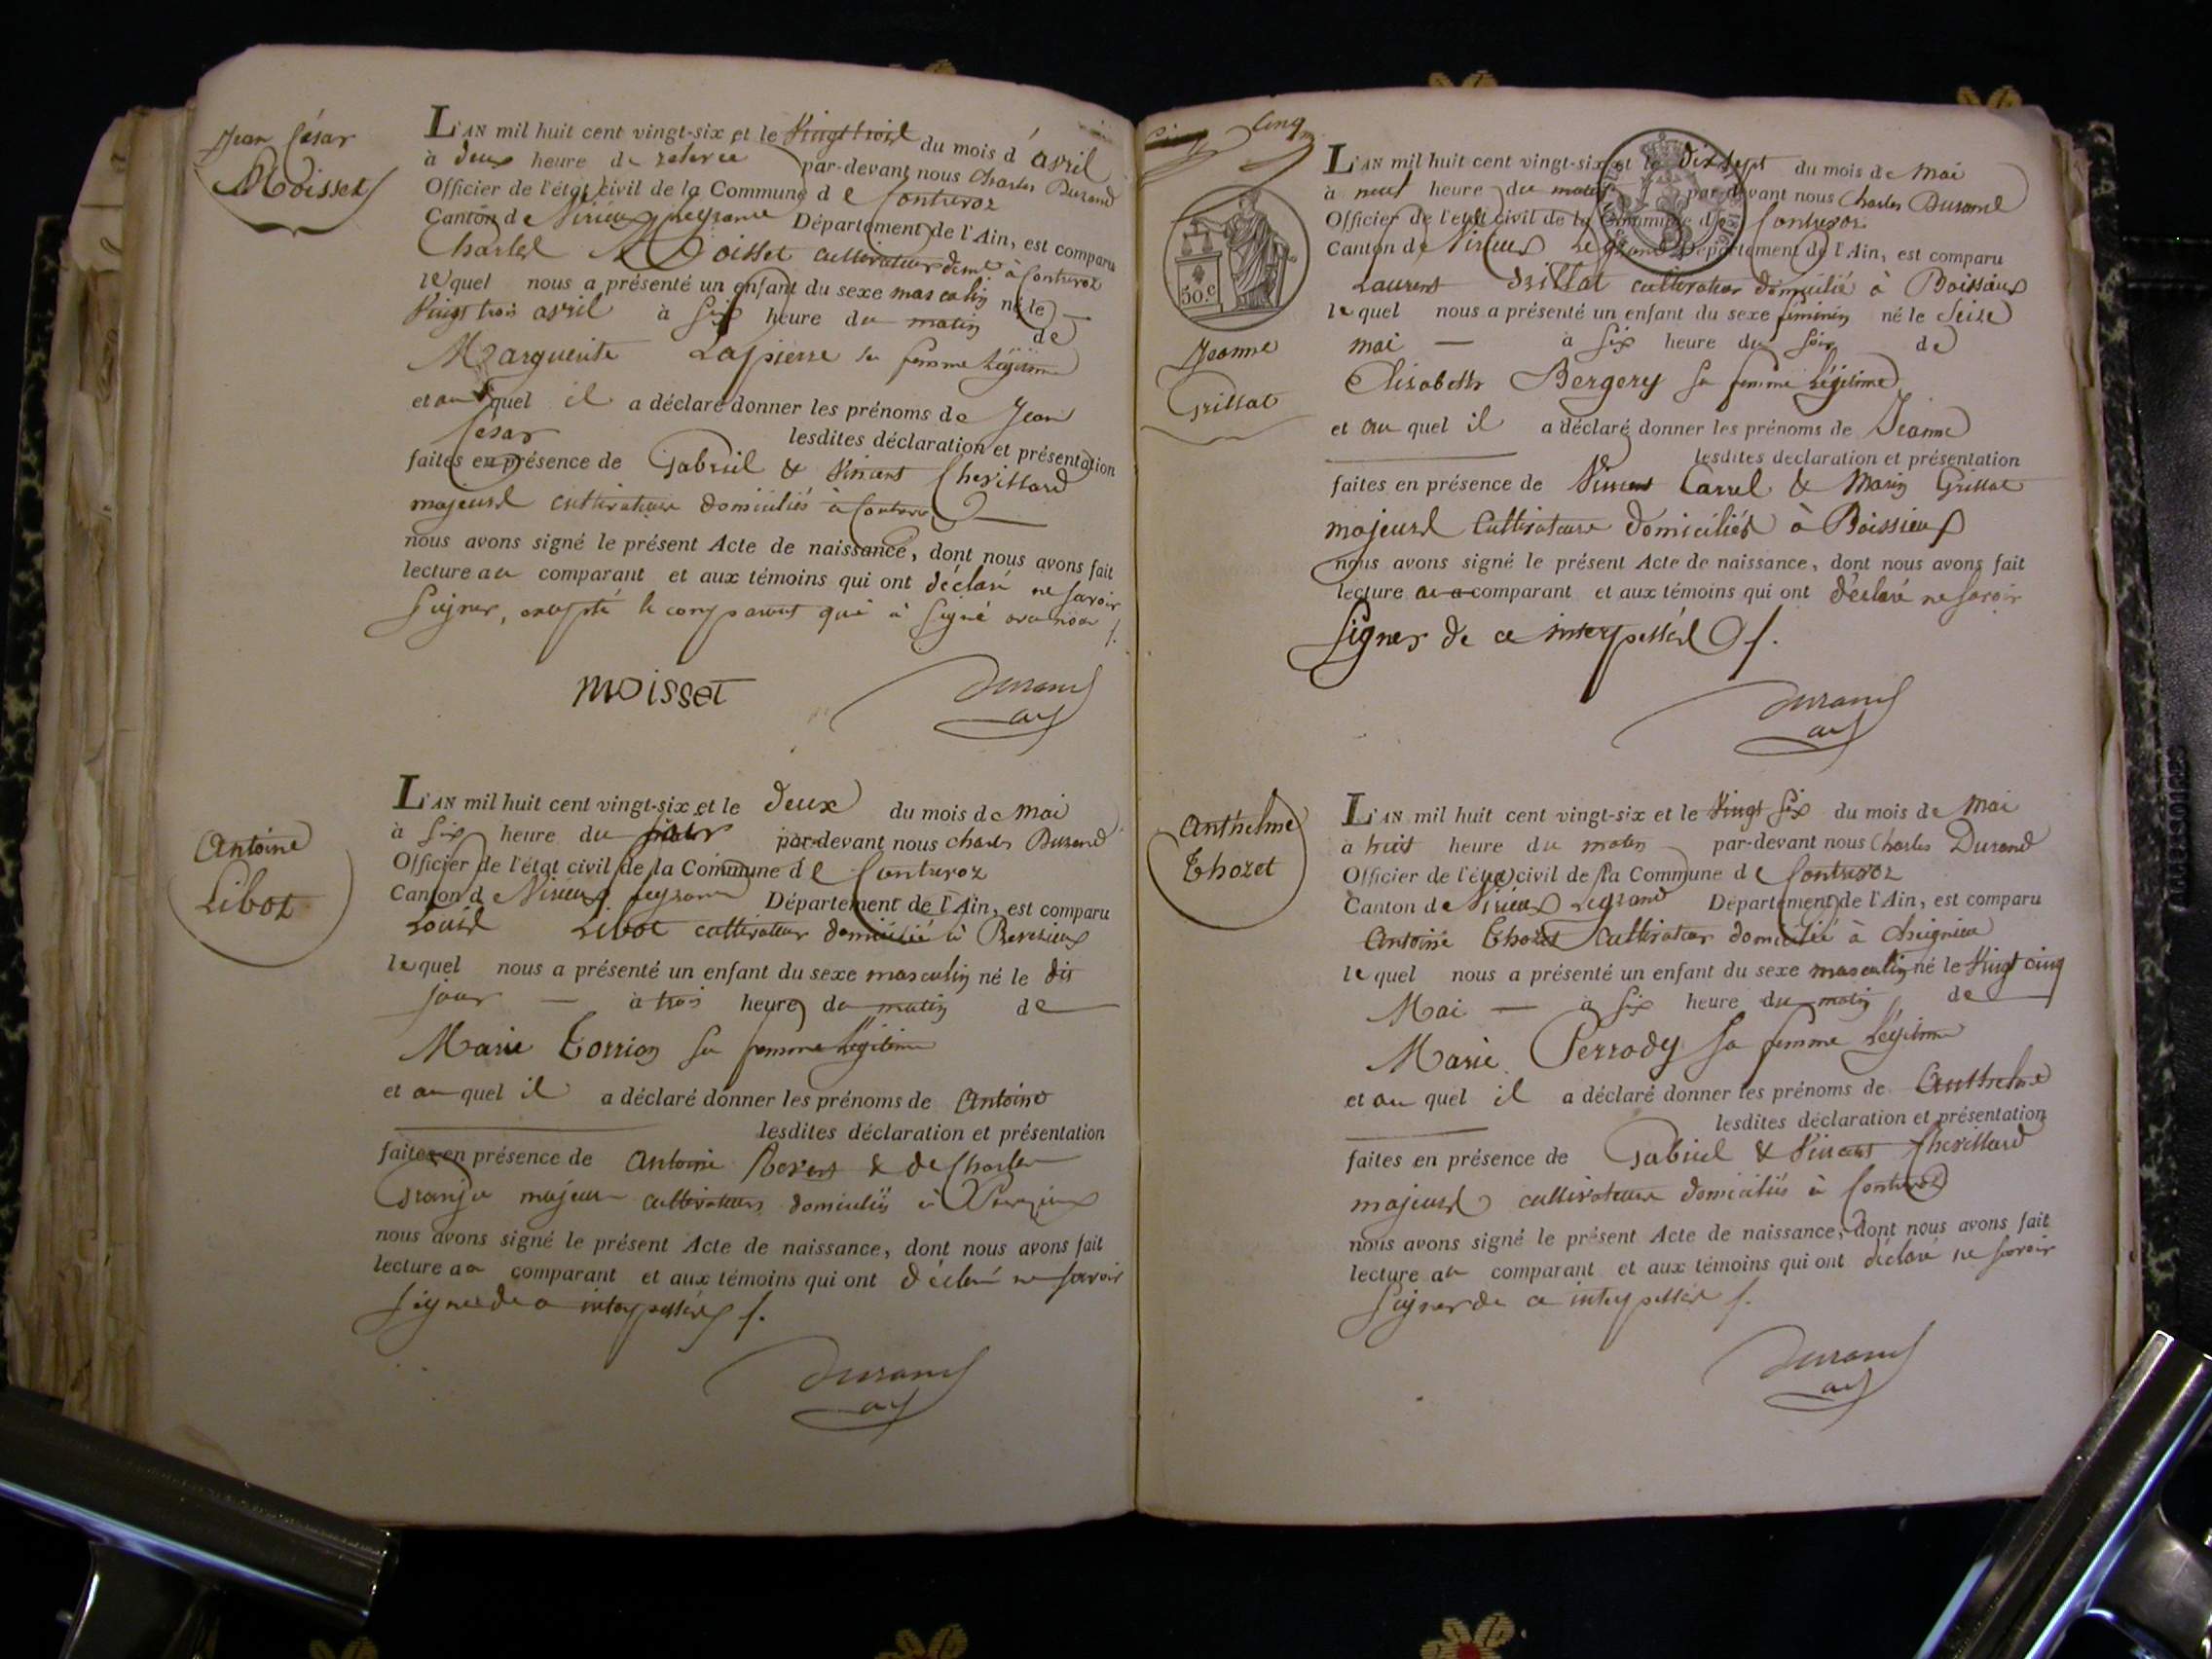 Jean César
Moisset
L'AN mil huit cent vingt-six et le Vingt trois du mois d'avril
à deux heure de relevée par-devant nous Charles Durand
Officier de l'état civil de la Commune de Contrevoz
Canton de Virieux le grand Département de l'Ain, est comparu
Charles Moisset cultivateur dom.é à Contrevoz
lequel nous a présenté un enfant du sexe masculin né le
Vingt trois avril à Six heure du matin de
Marguerite Lapierre sa femme légitime
et au quel il a déclaré donner les prénoms de Jean
César lesdites déclaration et présentation
faites en présence de Gabriel & Vincent Chevillard
majeurs cultivateurs domiciliés à Contrevoz
nous avons signé le présent Acte de naissance, dont nous avons fait
lecture au comparant et aux témoins qui ont déclaré ne savoir
Signer, excepté le comparant qui à Signé avec nous
moisset Durand
Antoine
Libot
L'AN mil huit cent vingt-six et le deux du mois de Mai
à Six heure du par-devant nous charles Durand
Officier de l'état civil de la Commune de Contrevoz
Canton de Virieux legrand Département de l'Ain, est comparu
Louis Libot cultivateur domicilié à
lequel nous a présenté un enfant du sexe masculin né le dit
jour à trois heure du matin de
Marie Torrion sa femme Légitime
et au quel il a déclaré donner les prénoms de Antoine
lesdites déclaration et présentation
faites en présence de Antoine & de Charles
majeurs cultivateurs domiciliés à
nous avons signé le présent Acte de naissance, dont nous avons fait
lecture au comparant et aux témoins qui ont déclaré ne savoir
Signer de ce interpellés
Durand
Cinq
50.c
Jeanne
Grillat
L'AN mil huit cent vingt-six et le dix sept du mois de Mai
à neuf heure du matin par-devant nous Charles Durand
Officier de l'état civil de la Commune de Contrevoz
Canton de Virieux Le grand Département de l'Ain, est comparu
Laurent Grillat cultivateur domicilié à Boissieux
lequel nous a présenté un enfant du sexe feminin né le Seize
mai à Six heure du Soir de
Elisabeth Bergery sa femme Légitime
et au quel il a déclaré donner les prénoms de Jeanne
lesdites déclaration et présentation
faites en présence de Vincent Carrel & Marin Grillat
majeurs Cultivateurs domiciliés à Boissieux
nous avons signé le présent Acte de naissance, dont nous avons fait
lecture au comparant et aux témoins qui ont déclaré ne savoir
Signer de ce interpellés
Durand
Anthelme
Thozet
L'AN mil huit cent vingt-six et le Vingt Six du mois de Mai
à huit heure du matin par-devant nous Charles Durand
Officier de l'état civil de la Commune de Contrevoz
Canton de Virieux Legrand Département de l'Ain, est comparu
Antoine Thozet cultivateur domicilié à Cheignieu
lequel nous a présenté un enfant du sexe masculin né le Vingt cinq
Mai à Six heure du matin de
Marie Perrody sa femme Légitime
et au quel il a déclaré donner les prénoms de Anthelme
lesdites déclaration et présentation
faites en présence de Gabriel & Vincent Chevillard
majeurs cultivateurs domiciliés à Contrevoz
nous avons signé le présent Acte de naissance, dont nous avons fait
lecture au comparant et aux témoins qui ont déclaré ne savoir
Signer de ce interpellés
Durand